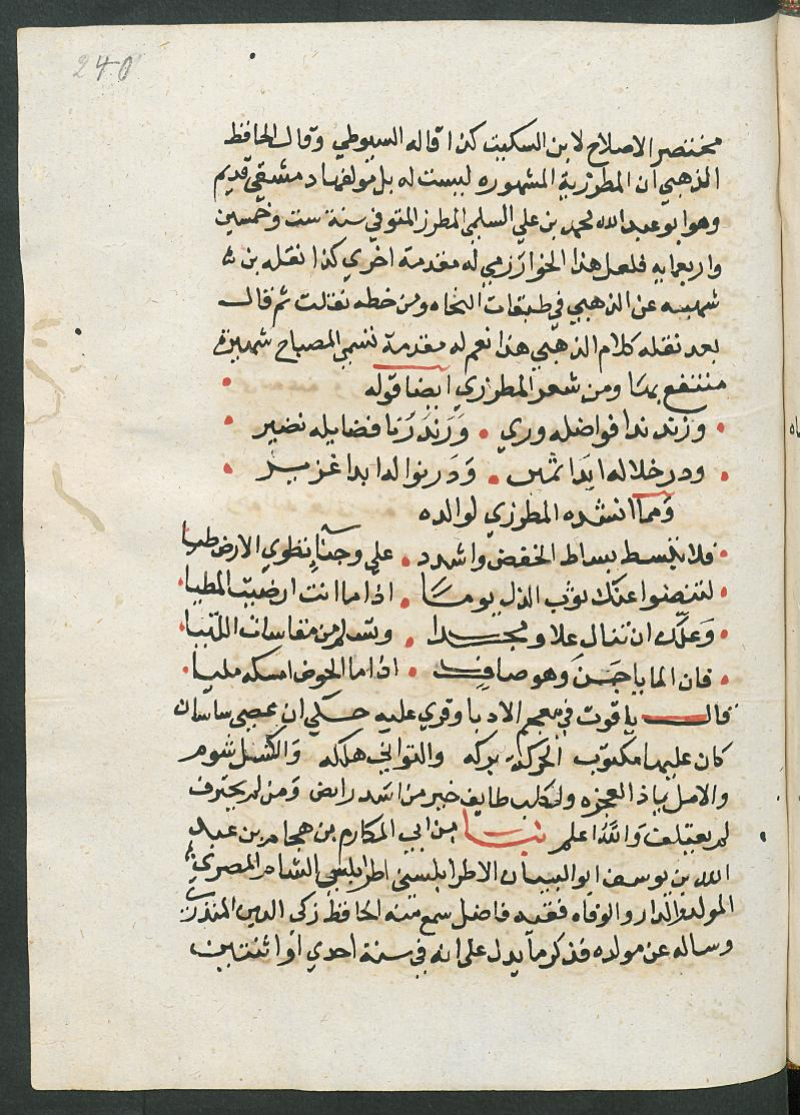 240
مختصر الاصلاح لابن السكيت كذا قاله السيوطي وقال الحافظ
الذهبي ان المطرزية المشهوره ليست له بل مولفها دمشقي قديم
وهو ابو عبد الله محمد بن علي السلمي المطرز المتوفي سنة ست وخمسين
واربعمايه فلعل هذا الخوارزمي له مقدمة اخري كذا نقله بن
شهبه عن الذهبي في طبقات النحاه ومن خطه نقلت ثم قال
بعد نقله كلام الذهبي هذا نعم له مقدمة تسمي المصباح شهيرة
منتفع بها ومن شعر المطرزي ايضا قوله
وزند ندا فواضله وري • وَرَنْدُ رُبا فضايله نضير
ودر خلاله ابدا ثمين • وَدَر نواله ابدا غزير
ومما انشده المطرزي لوالده
فلا تبسط بساط الخفض واشدد • علي وجناءٍ تطوي الارض طيا
لتنضوا عنك ثوب الذل يوما • اذا ما انت ارضيت المطيا
وَعلّك ان تنال علا ومجدا • وتسلم من مقاسات اللتيا
فان الما ياجَن وهو صافٍ • اذا ما الحوض امسكه مليا
قال ياقوت في معجم الادبا وقري عليه حكي ان عصي ساسان
كان عليها مكتوب الحركة بركه والتواني هلكه والكسل شوم
والامل زاد العجزه ولكلب طايف خير من اسد رابض ومن لم يحترف
لم يعتلف وَاللهُ اعلم نبا بن ابي المكارم بن هجام بن عبد
الله بن يوسف ابو البيان الاطرابلسي اطرابلس الشام المصري
المولد والدار والوفاه فقيه فاضل سمع منه الحافظ زكي الدين المنذري
وساله عن مولده فذكر ما يدل علي انه في سنة احدي او اثنتين